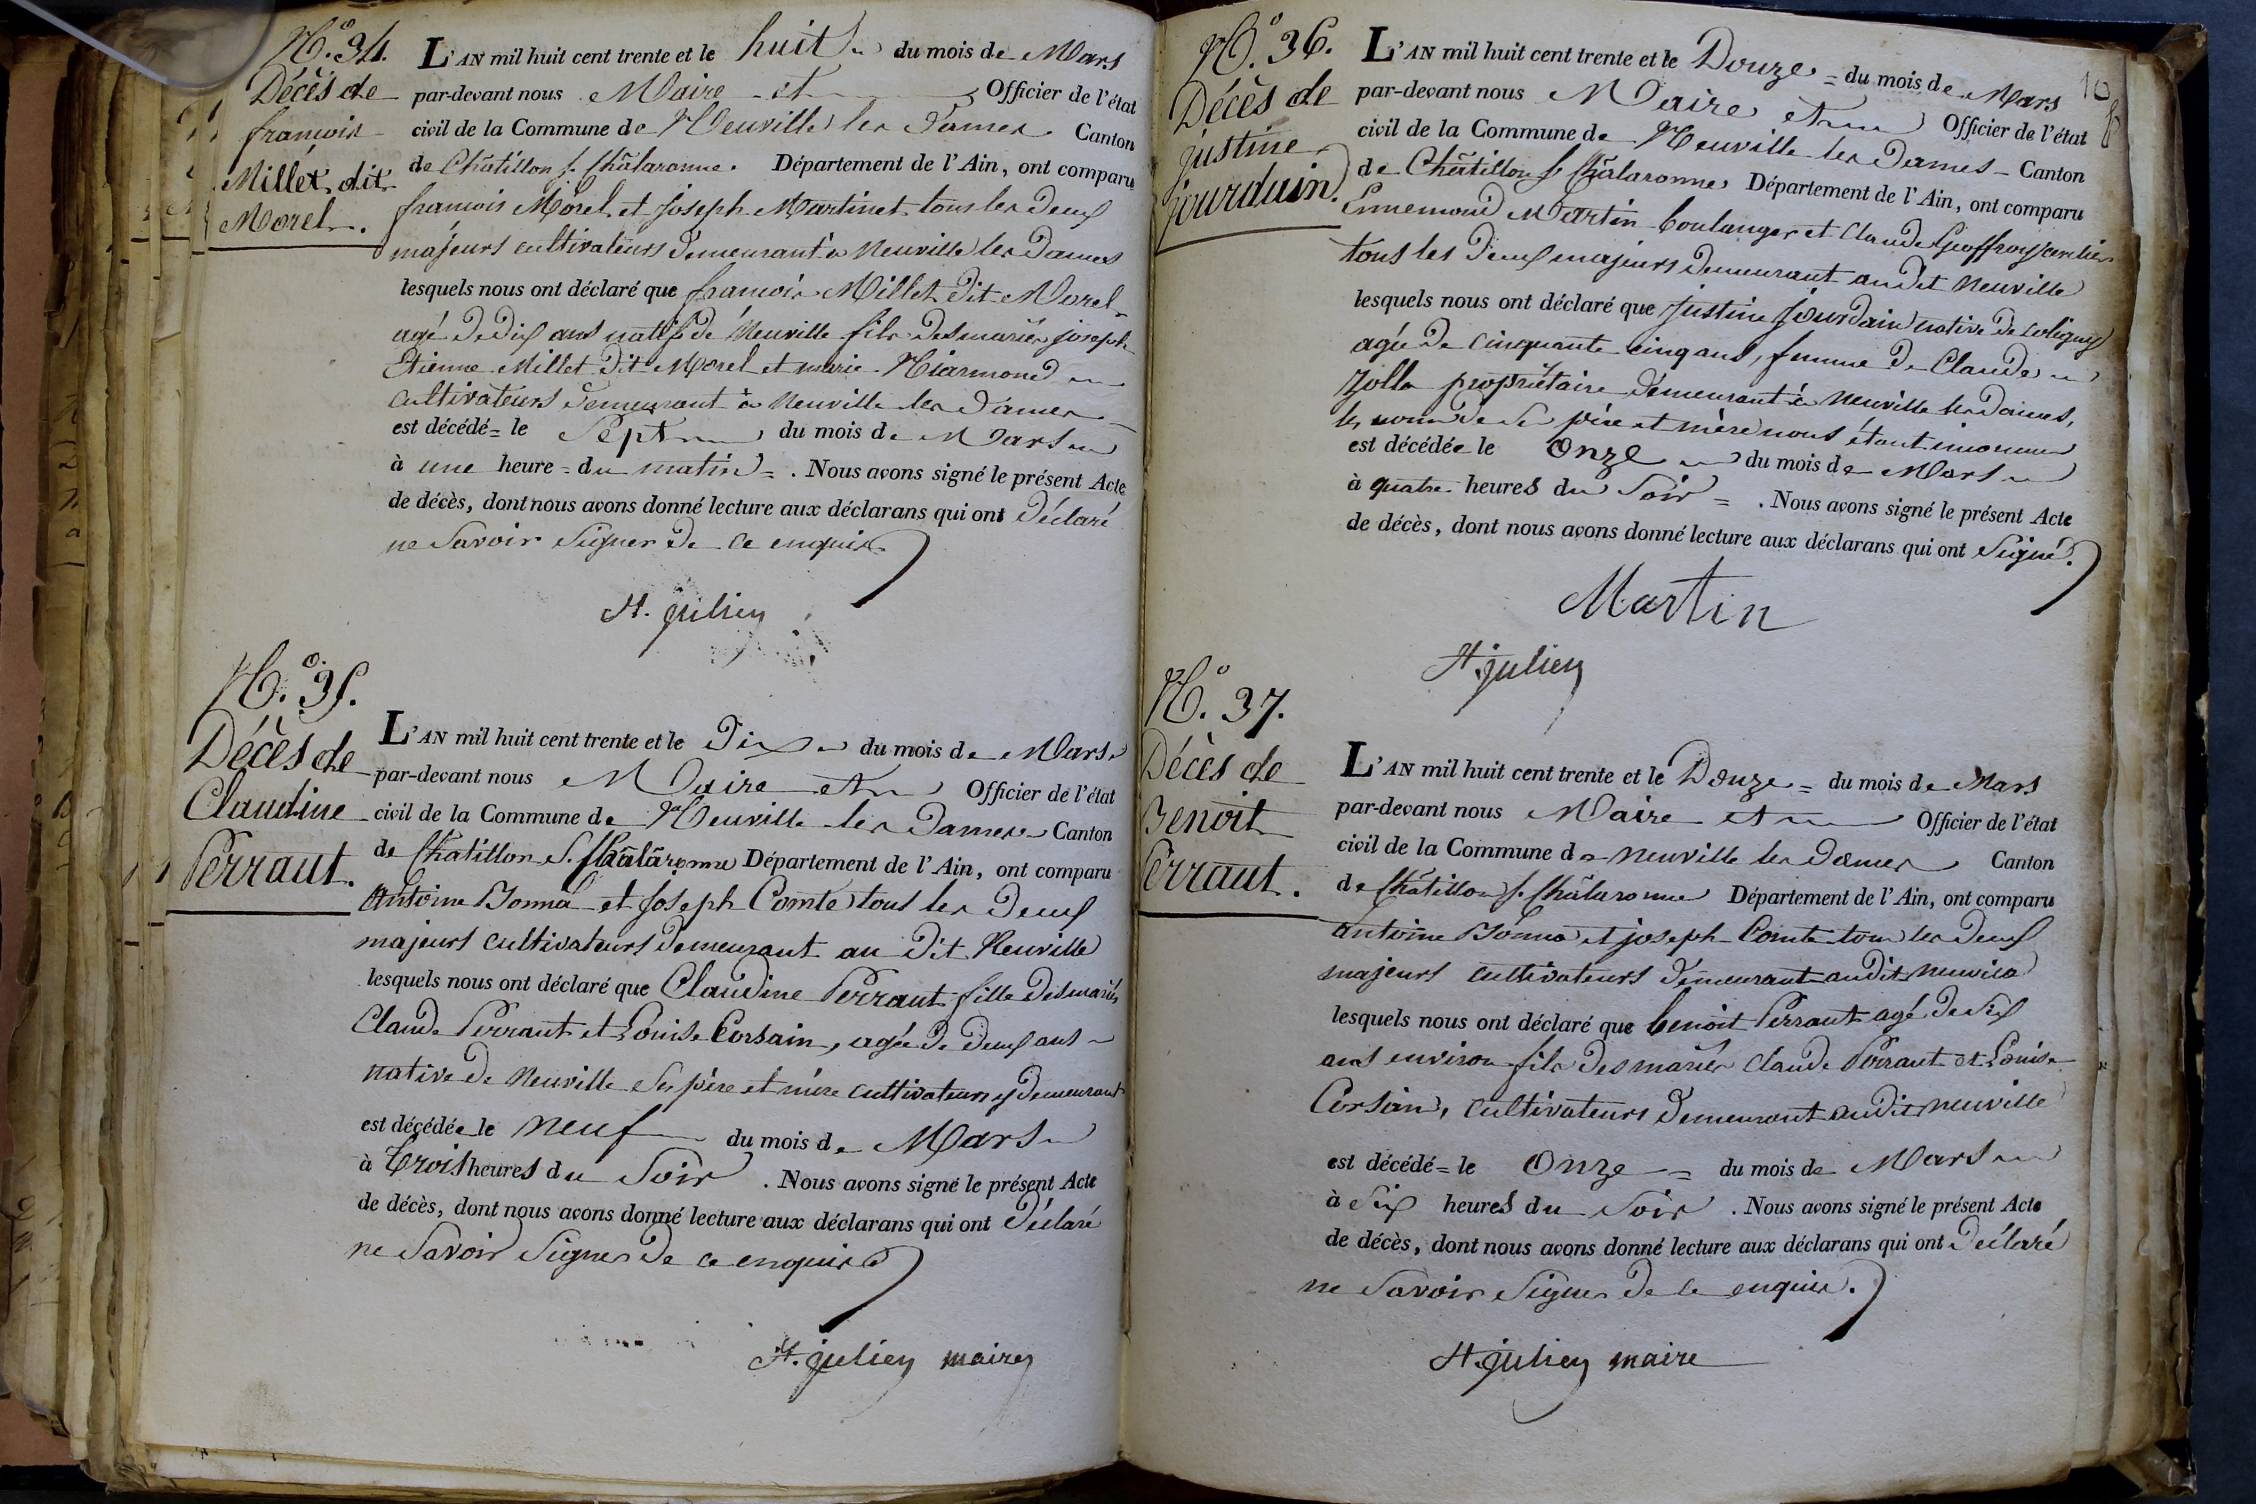 N.° 34.
Décès de
françois
Millet dit
Morel.
L'AN mil huit cent trente et le huit du mois de Mars
par-devant nous Maire et Officier de l'état
civil de la Commune de Neuville les Dames Canton
de Châtillon s. Châlaronne. Département de l'Ain, ont comparu
françois Morel et Joseph Martinet tous les deux
majeurs cultivateurs demeurant à Neuville les Dames
lesquels nous ont déclaré que françois Millet dit Morel
agé de dix ans natif de Neuville fils des mariés joseph
Etienne Millet dit Morel et marie
cultivateurs demeurant à Neuville les Dames
est décédé = le Sept du mois de Mars
à une heure = du matin = . Nous avons signé le présent Acte
de décès, dont nous avons donné lecture aux déclarans qui ont déclaré
ne Savoir Signer de ce enquis
St. julien
N.° 35.
Décès de
Claudine
Perraut.
L'AN mil huit cent trente et le Dix du mois de Mars
par-devant nous Maire et Officier de l'état
civil de la Commune de Neuville les Dames Canton
de Chatillon S. Châlaronne Département de l'Ain, ont comparu
Antoine Bonna et Joseph Comte tous les deux
majeurs cultivateurs demeurant au dit Neuville
lesquels nous ont déclaré que Claudine Perraut fille des mariés
Claude Perraut et Louise Corsain, agée de deux ans
native de Neuville Ses père et mère cultivateurs y demeurant
est décédée le neuf du mois de Mars
à trois heures du Soir . Nous avons signé le présent Acte
de décès, dont nous avons donné lecture aux déclarans qui ont déclaré
ne Savoir Signer de ce enquis
St. julien maire
10
N.° 36.
Décès de
justine
jourdain.
L'AN mil huit cent trente et le Douze = du mois de Mars
par-devant nous Maire et Officier de l'état
civil de la Commune de Neuville les Dames - Canton
de Châtillon s. Châlaronne Département de l'Ain, ont comparu
Ennemond Martin boulanger et Claude Geoffray
tous les deux majeurs demeurant au dit Neuville
lesquels nous ont déclaré que Justine Jourdain native de coligny
agée de cinquante cinq ans, femme de Claude
propriétaire demeurant à Neuville les Dames,
les noms de ses père et mère nous étant inconnus
est décédée le Onze du mois de Mars
à quatre heures du Soir = . Nous avons signé le présent Acte
de décès, dont nous avons donné lecture aux déclarans qui ont Signé.
Martin
St. julien
N.° 37.
Décès de
Benoit
Perraut.
L'AN mil huit cent trente et le Douze = du mois de Mars
par-devant nous Maire et Officier de l'état
civil de la Commune de neuville les dames Canton
de Châtillon s. Châlaronne Département de l'Ain, ont comparu
antoine Bonna et joseph Comte tous les deux
majeurs cultivateurs demeurant audit
lesquels nous ont déclaré que benoit Perraut agé de Six
ans environ fils des mariés Claude Perraut et Louise
Corsain, cultivateurs demeurant audit neuville
est décédé = le Onze = du mois de Mars
à Six heures du Soir . Nous avons signé le présent Acte
de décès, dont nous avons donné lecture aux déclarans qui ont déclaré
ne Savoir Signer de ce enquis.
St. julien maire